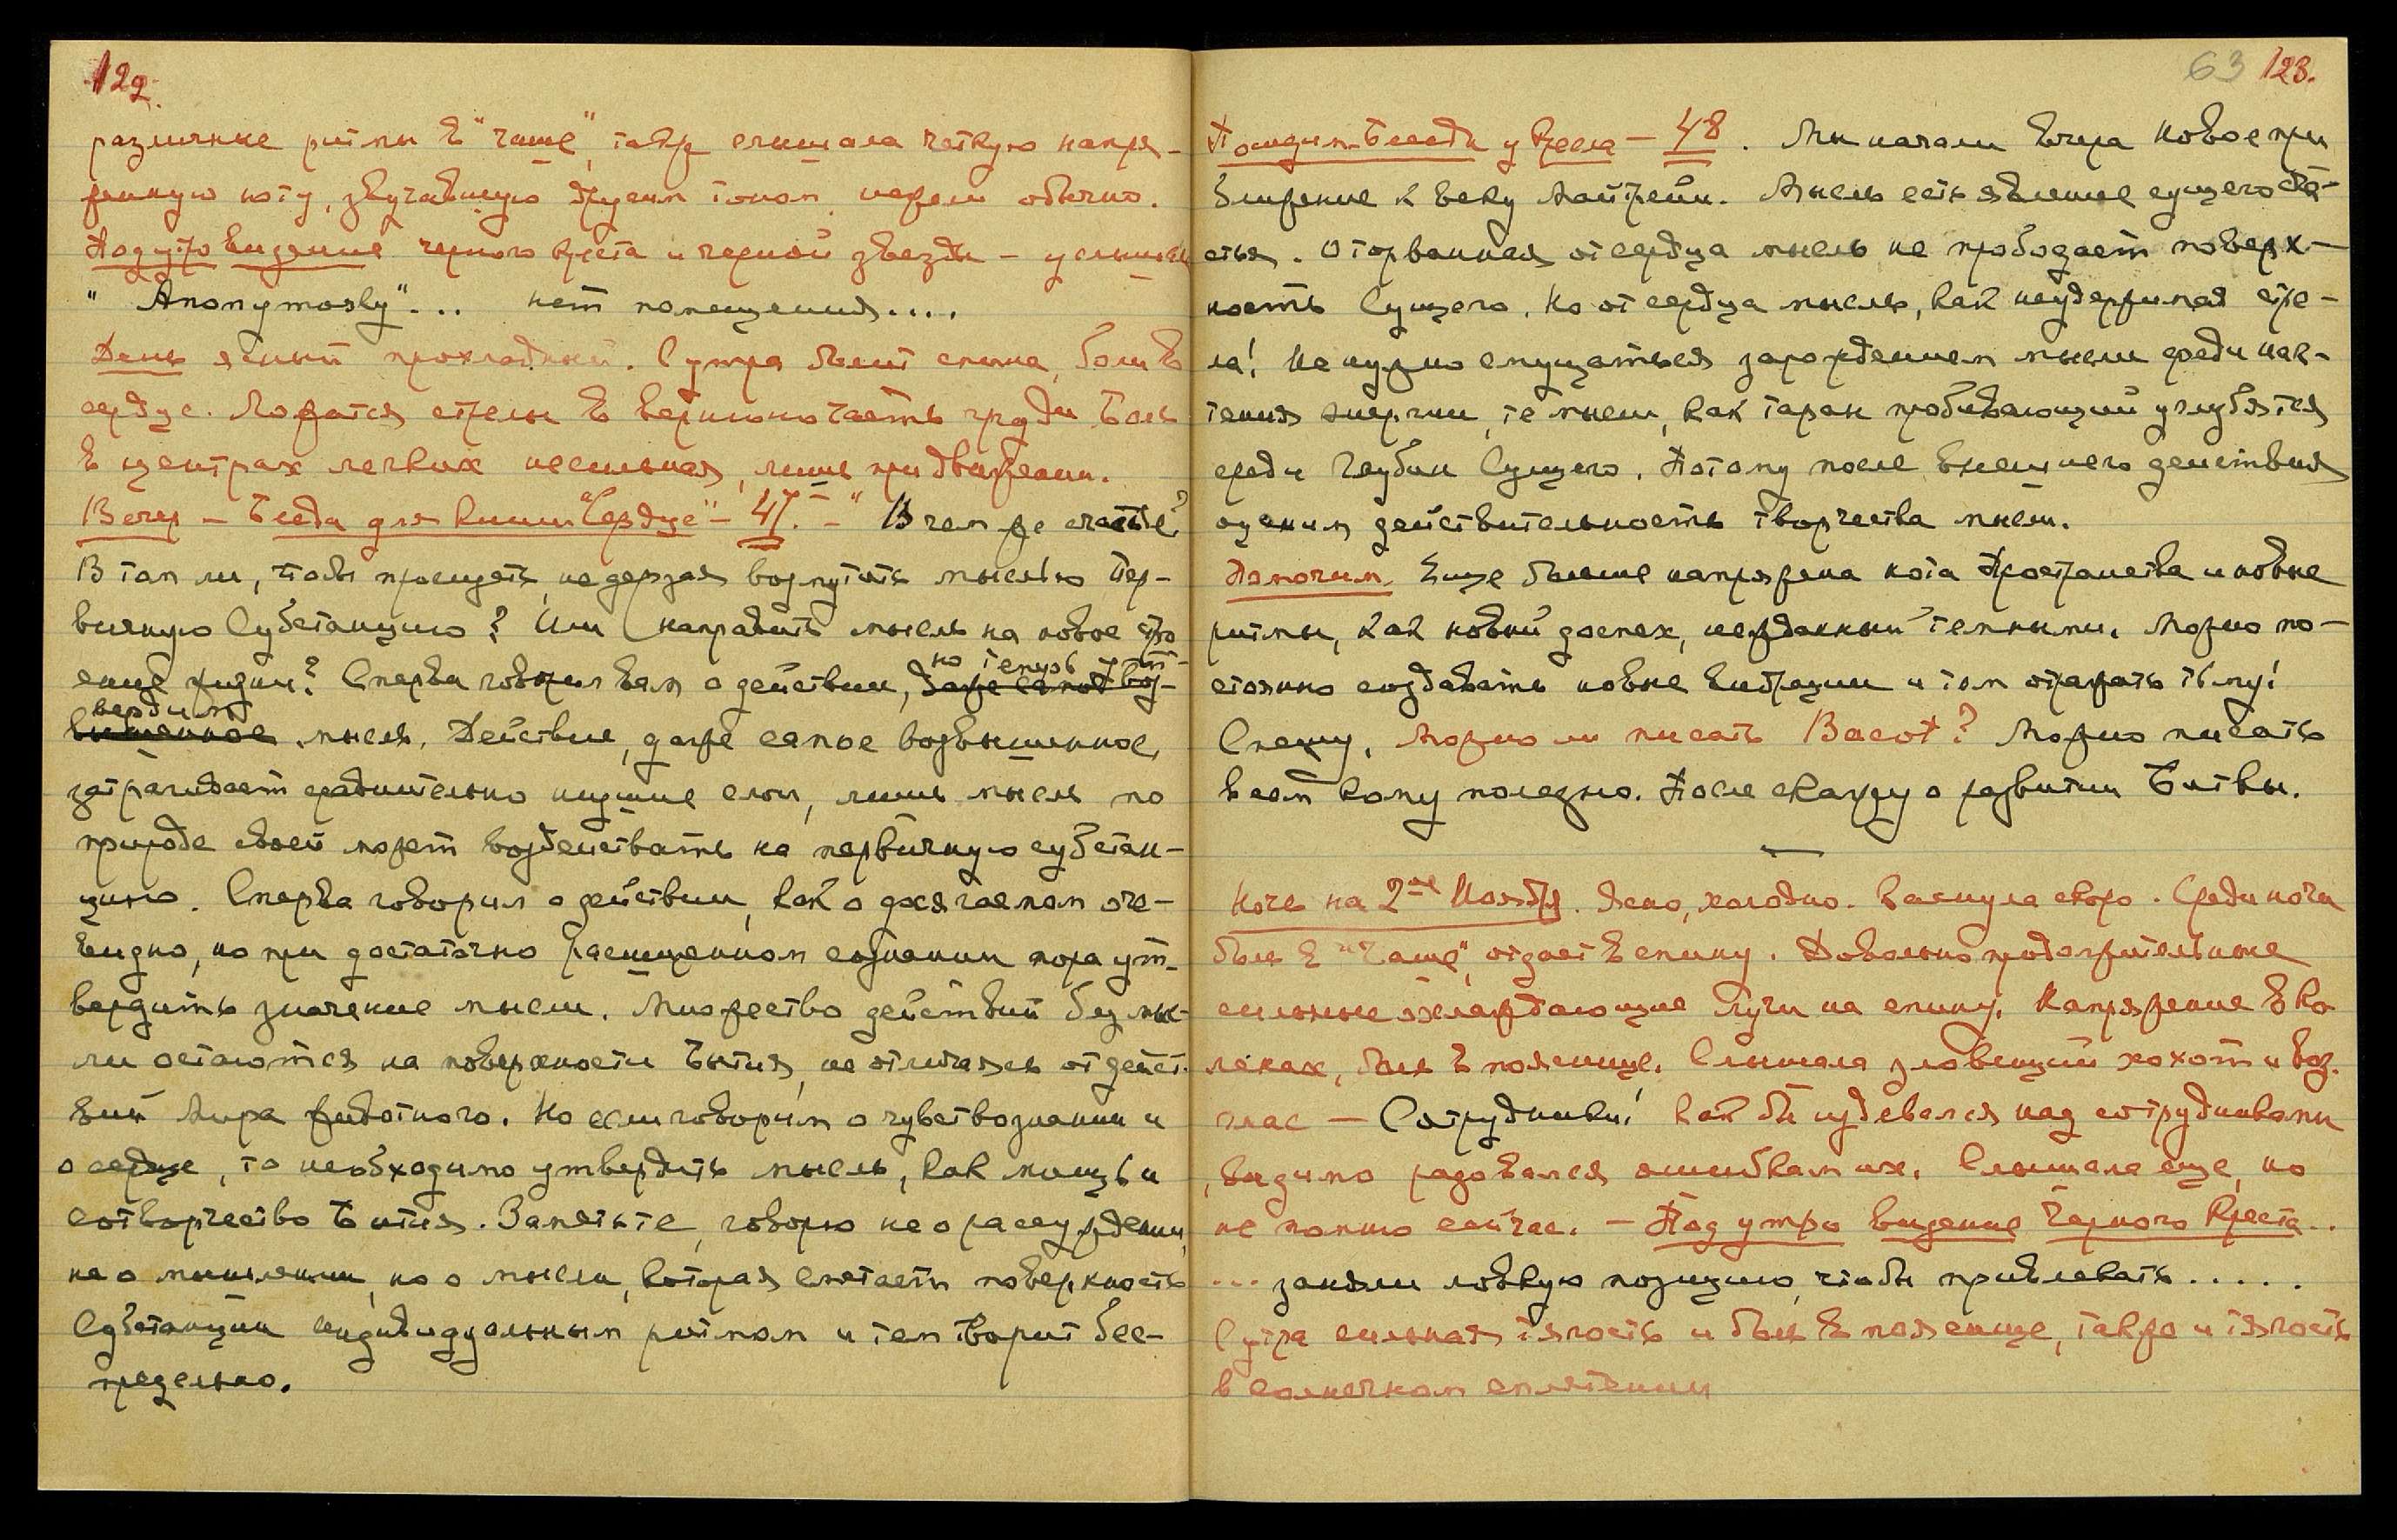 122.
различные ритмы в "чаше", также слышала четкую напря-
женную ноту, звучавшую другим тоном, нежели обычно.
Под утро видение черного креста и черной звезды – услышан
" Anonymously"... нет помещения....
День ясный прохладный. С утра болит спина, боли в
сердце. Ложатся стрелы в верхнюю часть груди. Боль
в центрах легких несильная, лишь при движении.
Вечер – Беседа для книги "Сердце" – 47. – " В чем же счастье?
В том ли, чтобы просидеть, не дерзая возмутить мыслью Пер-
вичную Субстанцию? Или направить мысль на новое стро
ение жизни? Сперва говорил вам о действии, даже самое воз-
но теперь ут-
вышенное
вердим
мысль. Действие, даже самое возвышенное,
затрагивает сравнительно низшие слои, лишь мысль по
природе своей может воздействовать на первичную субстан-
цию. Сперва говорил о действии, как о досягаемом оче-
видно, но при достаточно расширенном сознании пора ут-
вердить значение мысли. Множество действий без мыс-
ли остаются на поверхности Бытия, не отличаясь от дейст-
вий Мира животного. Но если говорим о чувствознании и
о сердце, то необходимо утвердить мысль, как мощь и
сотворчество Бытия. Заметьте, говорю не о рассуждении,
не о мышлении, но о мысли, которая сметает поверхность
Субстанции индивидуальным ритмом и тем творит бес-
предельно.
63 123.
Пошидин. Беседа у Кресла – 48. Мы начали вчера новое при
ближение к веку Майтрейи. Мысль есть явление сущего сча-
стья. Оторванная от сердца мысль не прободает поверх-
ность Сущего. Но от сердца мысль, как неудержимая стре-
ла! Не нужно смущаться зарождением мысли среди наг-
тения энергии, те мысли, как таран пробивающий углубятся
среди Глубин Сущего. Потому после внешнего действия
оценим действительность творчества мысли.
Помогим. Еще больше напряжена нота Пространства и новые
ритмы, как новый доспех, нежданный темными. Можно по-
стоянно создавать новые вибрации и тем отражать тьму!
Спешу. Можно ли писать Васот? Можно писать
всем кому полезно. После скажу о развитии Битвы.
Ночь на 2ое Ноября. Ясно, холодно. Заснула скоро. Среди ночи
боль в "Чаше", отдает в спину. Довольно продолжительные
сильные охлаждающие Лучи на спину. Напряжение в ко
ленах, боль в пояснице. Слышала зловещий хохот и воз-
глас – Сотрудники! Как бы издевался над сотрудниками
, видимо радовался ошибкам их. Слышала еще, но
не помню сейчас. – Под утро видение Черного Креста..
... заняли ловкую позицию, чтобы привлекать.....
С утра сильная тягость и боль в пояснице, также и тягость
в солнечном сплетении